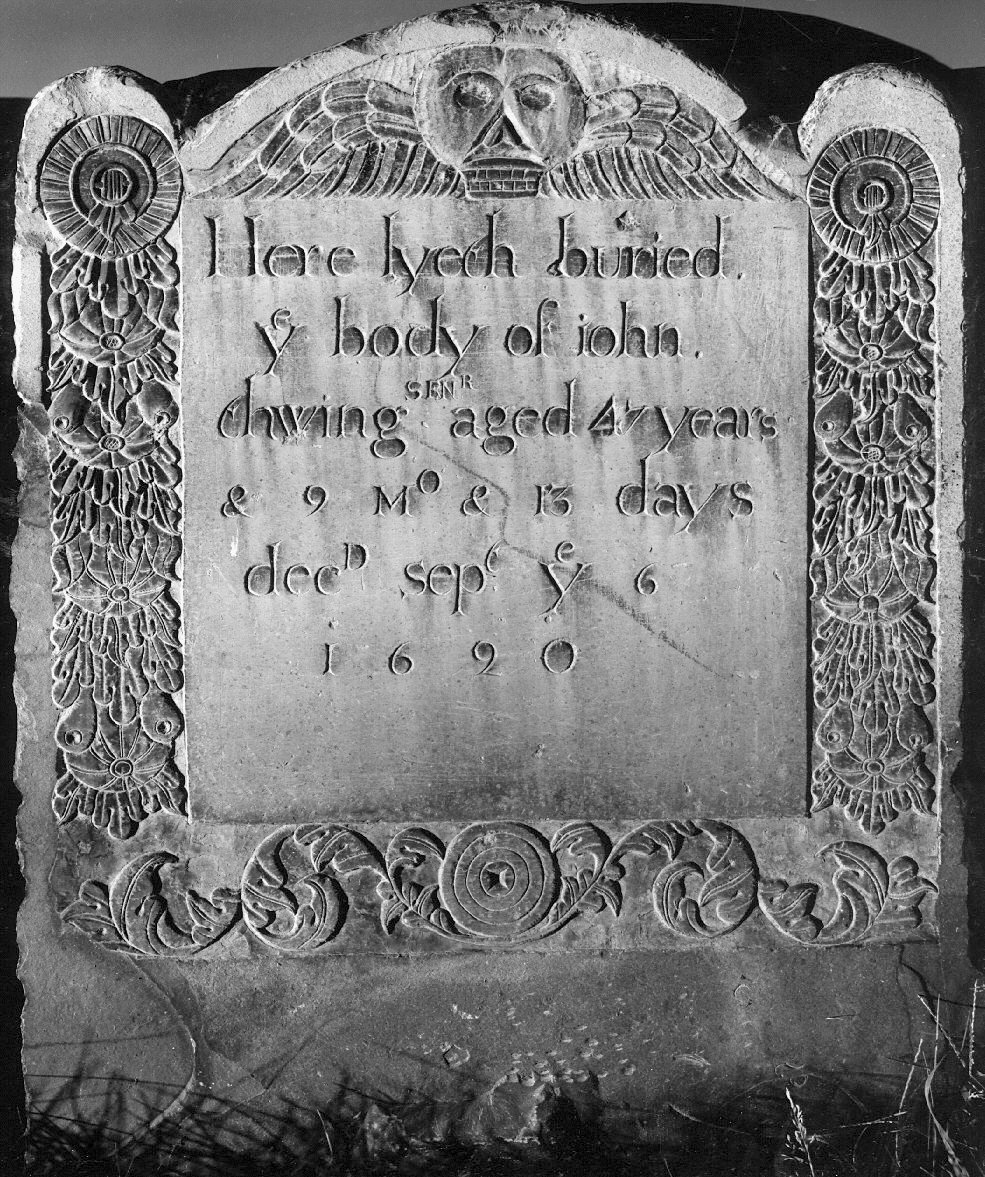 Here lyech buried.
yᵉ body of iohn.
chwing SENᴿ aged 47 years
& 9 Mᴼ & 13 days
decᴰ sepᵗ yᵉ 6
1 6 9 0